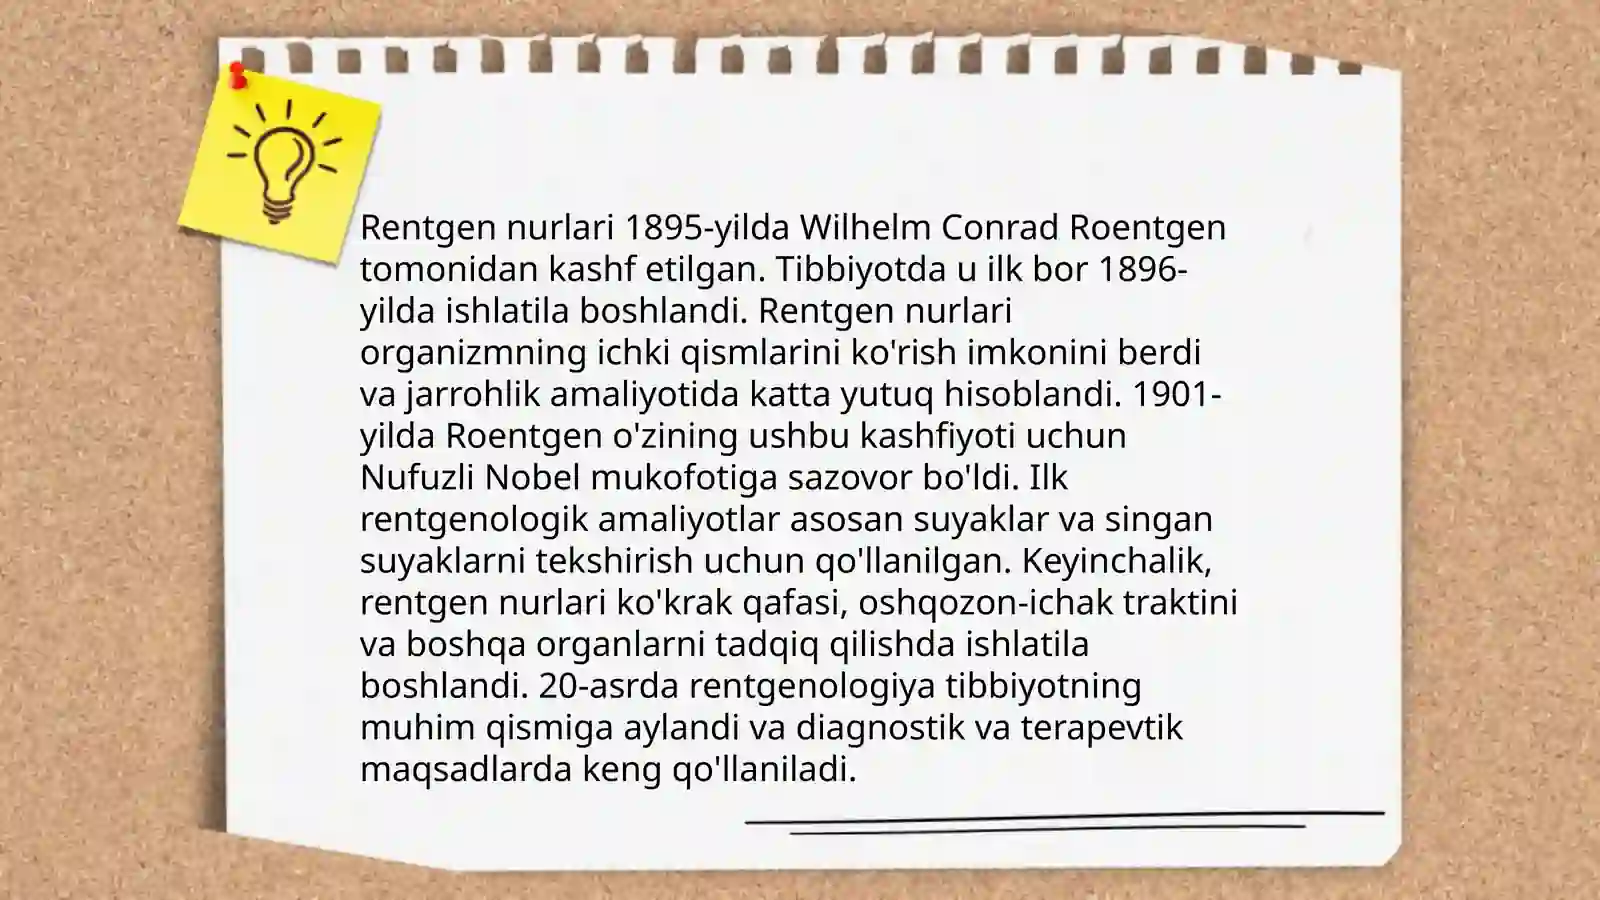 Rentgen nurlari 1895-yilda Wilhelm Conrad Roentgen
tomonidan kashf etilgan. Tibbiyotda u ilk bor 1896-
yilda ishlatila boshlandi. Rentgen nurlari
organizmning ichki qismlarini ko'rish imkonini berdi
va jarrohlik amaliyotida katta yutuq hisoblandi. 1901-
yilda Roentgen o'zining ushbu kashfiyoti uchun
Nufuzli Nobel mukofotiga sazovor bo'ldi. Ilk
rentgenologik amaliyotlar asosan suyaklar va singan
suyaklarni tekshirish uchun qo'llanilgan. Keyinchalik,
rentgen nurlari ko'krak qafasi, oshqozon-ichak traktini
va boshqa organlarni tadqiq qilishda ishlatila
boshlandi. 20-asrda rentgenologiya tibbiyotning
muhim qismiga aylandi va diagnostik va terapevtik
maqsadlarda keng qo'llaniladi.